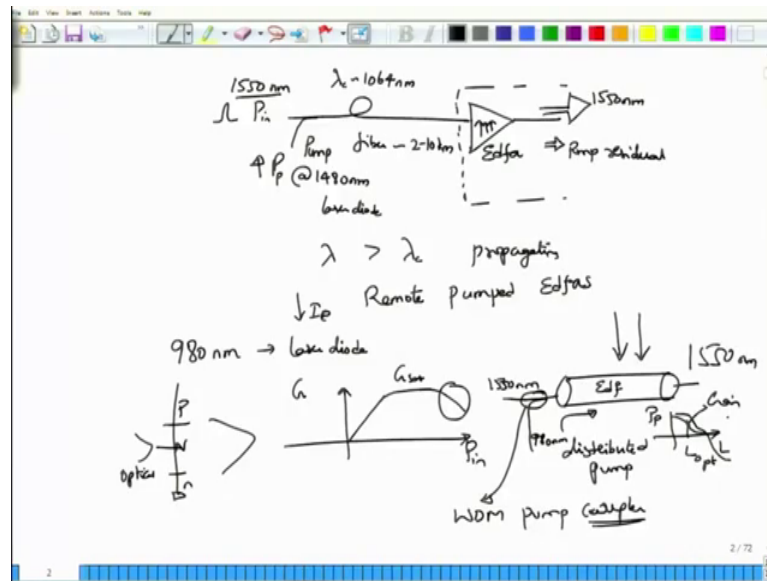 Edit View Insert Actions Tools Help
1550 nm
λc ~ 1064nm
Pin
1550nm
Pump
fiber ~ 2-10km
Edfa
⇒ Pump residual
↑ Pp @ 1480nm
laser diode
λ > λc propagating
↓ Ip Remote Pumped Edfas
980 nm → laser diode
1550 nm
G
Gsat
1550nm
Edf
P
N
n
Optical
Pin
980nm
distributed
pump
Pp
Gain
Lopt
L
WDM pump coupler
2 / 72
2